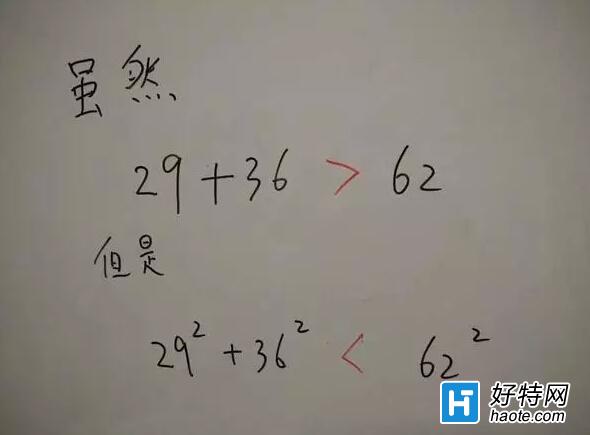 虽然
29+36 > 62
但是
29²+36² < 62²
好特网
haote.com